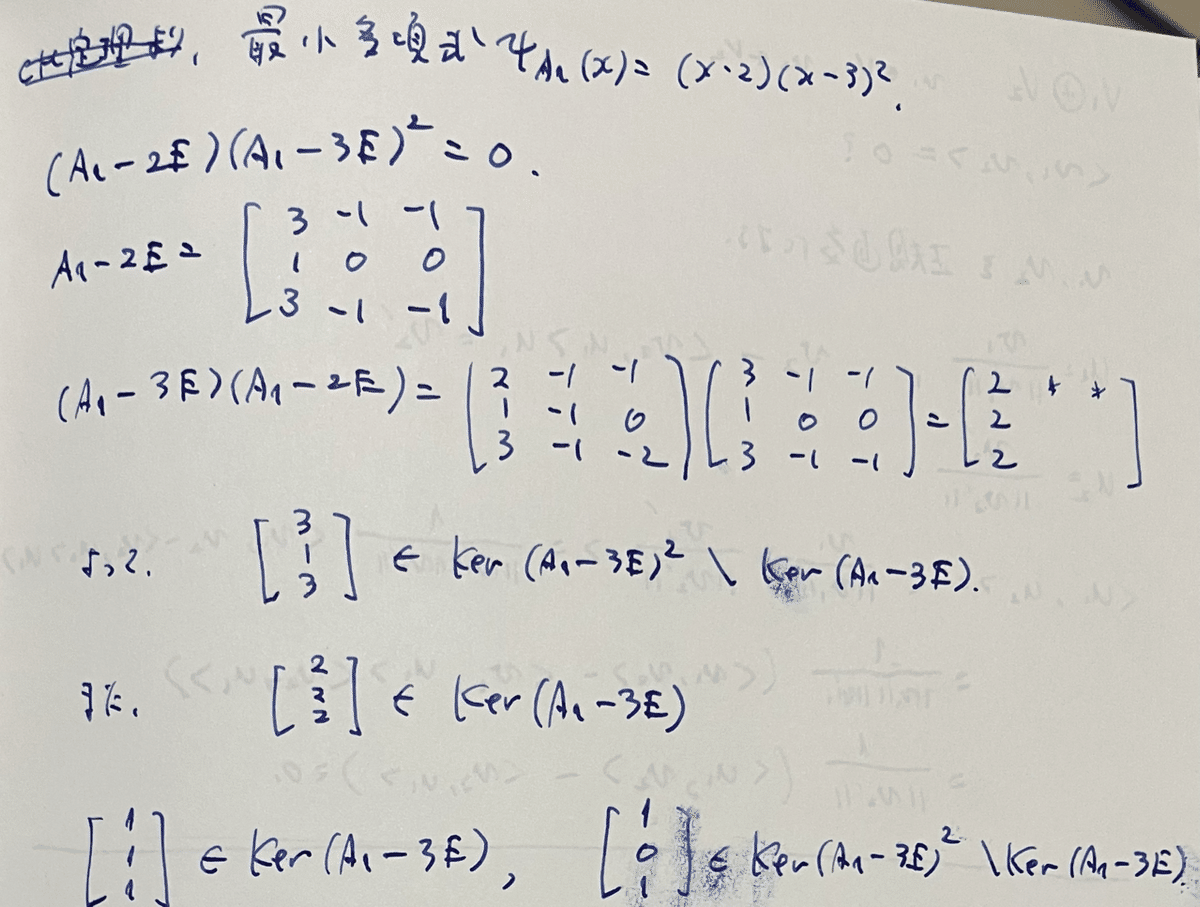 最小多項式 ψA₁(x) = (x-2)(x-3)².
(A₁-2E)(A₁-3E)² = 0.
A₁-2E = [3 -1 -1; 1 0 0; 3 -1 -1]
(A₁-3E)(A₁-2E) = [2 -1 -1; 1 -1 0; 3 -1 -2][3 -1 -1; 1 0 0; 3 -1 -1] = [2 * *; 2; 2]
よって. [3; 1; 3] ∈ Ker(A₁-3E)² \ Ker(A₁-3E).
また. [2; 2; 2] ∈ Ker(A₁-3E)
[1; 1; 1] ∈ Ker(A₁-3E), [1; 0; 1] ∈ Ker(A₁-3E)² \ Ker(A₁-3E).